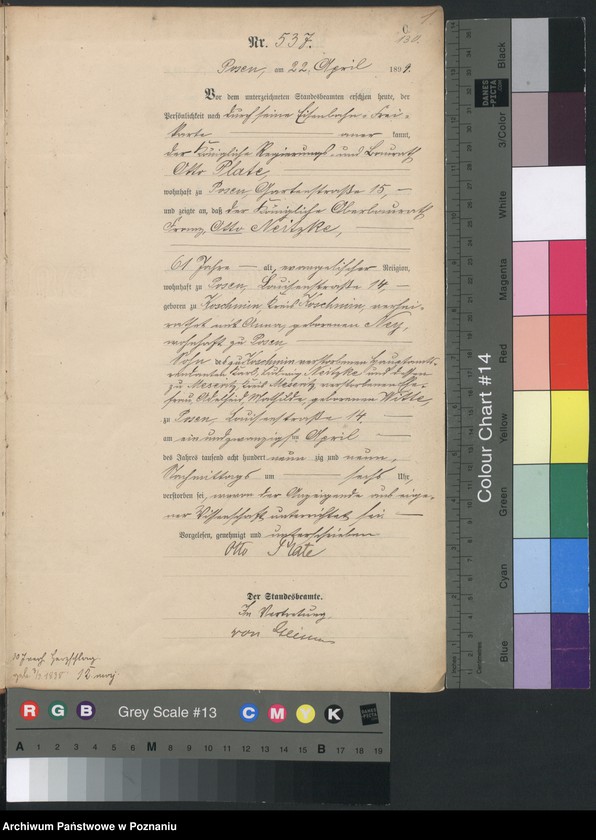 130.
Nr. 537.
Posen, am 22. April 1899.
Vor dem unterzeichneten Standesbeamten erschien heute, der
Persönlichkeit nach durch seine Eisenbahn-Frei-
karte anerkannt,
der Königliche Regierungs- und Baurath
Otto Plate,
wohnhaft zu Posen, Gartenstraße 15,
und zeigte an, daß der Königliche Oberbaurath
Franz Otto Neitzke,
61 Jahre alt, evangelischer Religion,
wohnhaft zu Posen, Louisenstraße 14,
geboren zu Koschmin, Kreis Koschmin, verhei-
rathet mit Anna, geborenen Ney,
wohnhaft zu Posen
Sohn des zu Koschmin verstorbenen
Karl Ludwig Neitzke und dessen
zu Meseritz, Kreis Meseritz verstorbenen Ehe-
frau Mathilde geborenen Witte,
zu Posen, Louisenstraße 14.
am ein und zwanzigsten April
des Jahres tausend acht hundert neunzig und neun,
Nachmittags um sechs Uhr,
verstorben sei, wovon der Anzeigende aus eige-
ner Wissenschaft unterrichtet sei
Vorgelesen, genehmigt und unterschrieben
Otto Plate
Der Standesbeamte.
In Vertretung
von
Colour Chart #14
DANES PICTA
Black
3/Color
White
Magenta
Red
Yellow
Green
Cyan
Blue
Centimetres
R G B Grey Scale #13 C M Y K
A 1 2 3 4 5 6 M 8 9 10 11 12 13 14 15 B 17 18 19
Archiwum Państwowe w Poznaniu